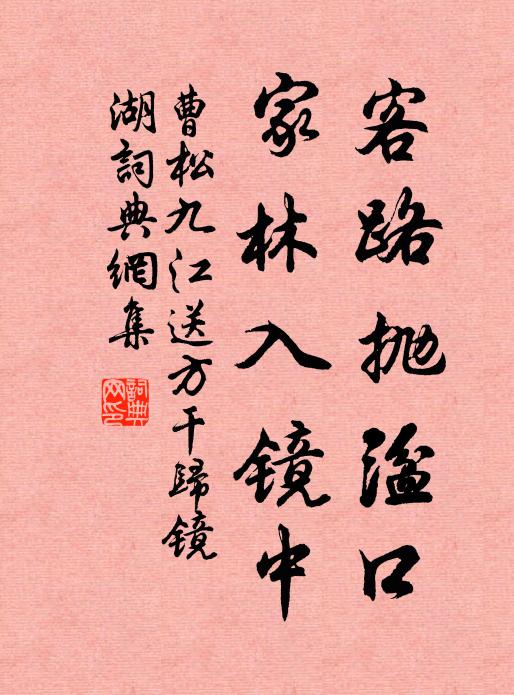 客路抛湓口
家林入镜中
曹松九江送方干歸镜
湖詞典網集
詞典
网印